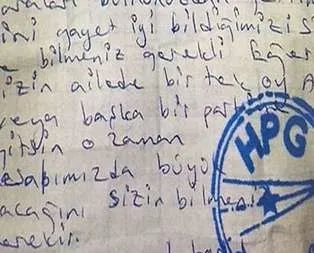 ini gayet iyi bildiğimizi Si
bilmeniz gerekli Eğer
izin ailede bir tek oy A
veya başka bir par
gitsin o zaman
esabımızda büyük
acağını sizin bilmeni
erekir.
HPG